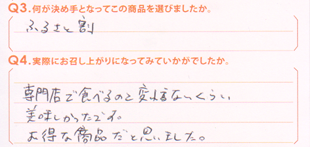 Q3.何が決め手となってこの商品を選びましたか。
ふるさと割
Q4.実際にお召し上がりになってみていかがでしたか。
専門店で食べるのと変わらないくらい
美味しかったです。
お得な商品だと思いました。